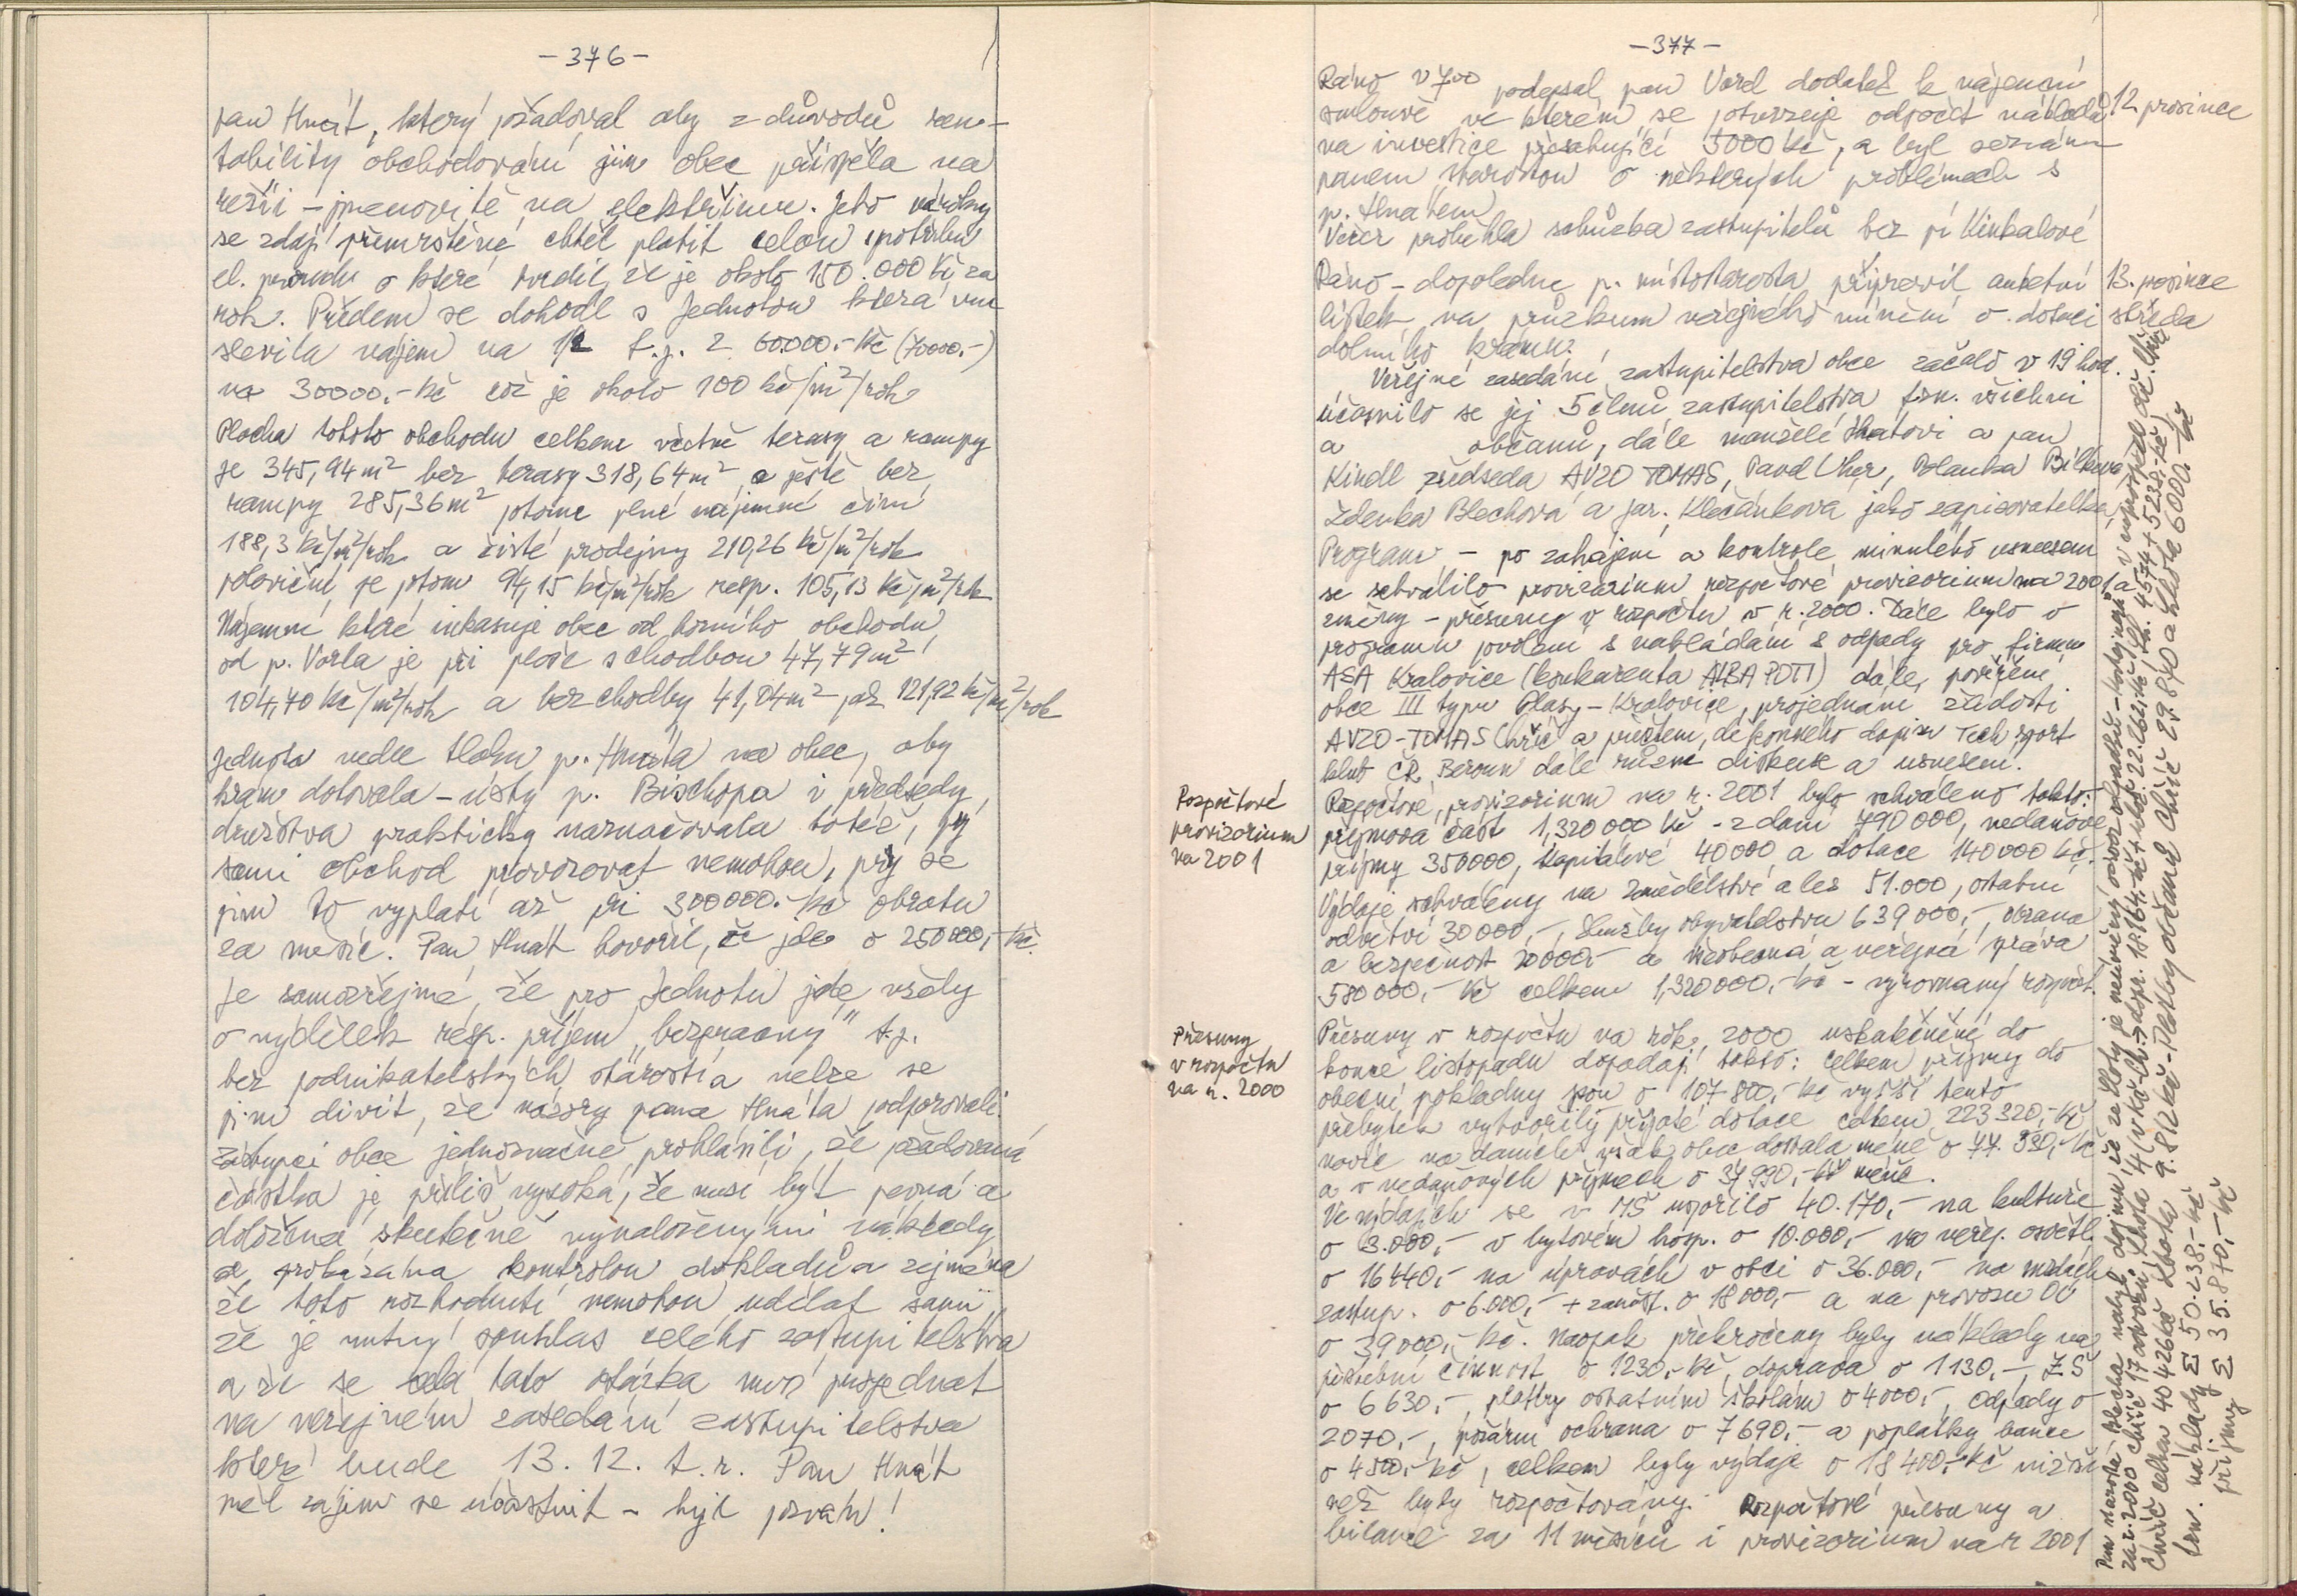 -376-
pan Hnát, který požadoval aby z důvodů ren-
tability obchodování jim obec přispěla na
režii - jmenovitě na elektřinu. Jeho nároky
se zdají přemrštěné, chtěl platit celou spotřebu
el. proudu o které tvrdil, že je okolo 150.000 Kč za
rok. Předem se dohodl s Jednotou která mu
slevila nájem na 1/2 t.j. z 60000.- Kč (70000.-)
na 30000.- Kč což je okolo 100 kč/m²/rok
Plocha tohoto obchodu celkem včetně terasy a rampy
je 345,94 m² bez terasy 318,64 m² a ještě bez
rampy 285,36 m² potom plné nájemné činí
188,3 Kč/m²/rok a čisté prodejny 210,26 Kč/m²/rok
poloviční je potom 94,15 kč/m²/rok resp. 105,13 Kč/m²/rok
Nájemné které inkasuje obec od horního obchodu
od p. Vorla je při ploše s chodbou 47,79 m²
104,70 Kč/m²/rok a bez chodby 41,04 m² již 121,92 kč/m²/rok
Jednota vedle tlaku p. Hnáta na obec, aby
krám dotovala - ústy p. Bischopa i předsedy
družstva prakticky naznačovala totéž, prý
sami obchod provozovat nemohou, prý se
jim to vyplatí až při 300000.- kč obratu
za měsíc. Pan Hnát hovořil, že jde o 250000,- Kč.
Je samozřejmé, že pro Jednotu jde vždy
o výdělek resp. příjem „bezpracný" t.j.
bez podnikatelských starostí a nelze se
jim divit, že názory pana Hnáta podporovali.
Zástupci obce jednoznačně prohlásili, že požadovaná
částka je příliš vysoká, že musí být pevná a
doložená skutečně vynaloženými náklady
a prokázána kontrolou dokladů a zejména
že toto rozhodnutí nemohou udělat sami,
že je nutný souhlas celého zastupitelstva
a že se celá tato otázka musí projednat
na veřejném zasedání zastupitelstva
které bude 13.12. t.r. Pan Hnát
měl zájem se účastnit - byl pozván!
-377-
Ráno v 7⁰⁰ podepsal pan Vorel dodatek k nájemní
smlouvě ve kterém se potvrzuje odpočet nákladů
12 prosince
na investice přesahující 5000 Kč, a byl seznám
panem starostou o některých problémech s
p. Hnátem
Večer proběhla schůzka zastupitelů bez pí Kinkalové
Ráno - dopoledne p. místostarosta připravil anketní
13. prosince
lístek na průzkum veřejného mínění o dotaci
středa
dolního krámu.
Veřejné zasedání zastupitelstva obce začalo v 19 hod.
účastnilo se jej 5 členů zastupitelstva tzn. všichni
a občanů, dále manželé Hnátovi a pan
Kindl předseda AVZO TOMAS, Pavel Uher, Blanka Bílková
Zdenka Blechová a Jar. Klečánková jako zapisovatelka
Program - po zahájení a kontrole minulého usnesení
se schválilo provizorium rozpočtové provizorium na 2001 a
změny - přesuny v rozpočtu v r. 2000. Dále bylo o
programu povolení s nakládání s odpady pro firmu
ASA Kralovice (konkurenta AHBA POTI) dále, pověření
obce III typu Plasy - Kralovice, projednání žádosti
AVZO-TOMAS Chříč a přečtení, děkovného dopisu Tech sport
klub ČR Beroun dále různé diskuse a usnesení.
Rozpočtové
provizorium
na 2001
Rozpočtové, provizorium na r. 2001 bylo schváleno takto:
příjmová část 1,320 000 Kč - z daní 790 000, nedaňové
příjmy 350000, kapitálové 40000 a dotace 140000 kč.
Výdaje schváleny na zemědělství a les 51.000, ostatní
odvětví 30000,-, Služby obyvatelstvu 639000,-, obrana
a bezpečnost 20000- a všeobecná a veřejná správa
580000,- Kč celkem 1,320000,- kč - vyrovnaný rozpočet.
Přesuny
v rozpočtu
na r. 2000
Přesuny v rozpočtu na rok 2000 uskutečněné do
konce listopadu dopadají takto: celkem příjmy do
obecní pokladny jsou o 107 800,- kč vyšší tento
přebytek vytvořily přijaté dotace celkem 223 320,- Kč
navíc na daních však obec dostala méně o 77.330,- kč
a v nedaňových příjmech o 37 990,- kč méně.
Ve výdajích se v MŠ uspořilo 40.170,- na kultuře
o 3.000,- v bytovém hosp. o 10.000,- na veřej. osvětl.
o 16440,- na úpravách v obci o 36.000,- na mzdách
zastup. o 6.000,- + zaměst. o 18000,- a na provozu OÚ
o 39000,- kč. Naopak překročeny byly náklady na
pěstební činnost o 1230,- Kč, doprava o 1130,-, ZŠ
o 6630,-, platby ostatním školám o 4000,-, odpady o
2070,-, požární ochrana o 7690,- a poplatky bance
o 4500,- kč, celkem byly výdaje o 18400,- Kč nižší
než byly rozpočtovány. Rozpočtové přesuny a
bilance za 11 měsíců i provizorium na r 2001
Pan starosta Blecha nabyl dojmu, že ze Lhoty je neúměrný odvoz odpadků
za r. 2000 Chříč 17 odvozů, Lhota 4
Chříč celkem 40426 kč Lhota 9.812 kč - Platby občanů Chříč 29.870 a Lhota 6000,- kč
tzn. náklady Σ 50.238,- kč
příjmy Σ 35.870,- kč